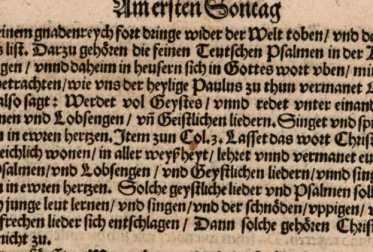 Am ersten Sontag
einem gnadenreych fort dringe wider der Welt toben/ vnd de
s list. Darzu gehören die feinen Teutschen Psalmen in der
gen/ vnnd daheim in heusern sich in Gottes wort vben/ mi
betrachten/ wie vns der heylige Paulus zu thun vermanet
also sagt: Werdet vol Geystes/ vnnd redet vnter einand
nen vnd Lobsengen/ vñ Geistlichen liedern. Singet vnd sp
n in ewren hertzen. Item zun Col. 3. Lasset das wort Christ
eichlich wonen/ in aller weyßheyt/ lehret vnnd vermanet eu
salmen/ vnd Lobsengen / vnd Geystlichen liedern/ vnnd sin
n in ewren hertzen. Solche geystliche lieder vnd Psalmen soll
ch junge leut lernen/ vnd singen/ vnd der schnöden/ vppigen/ v
frechen lieder sich entschlagen / Dann solche gehören Chris
nicht zu.